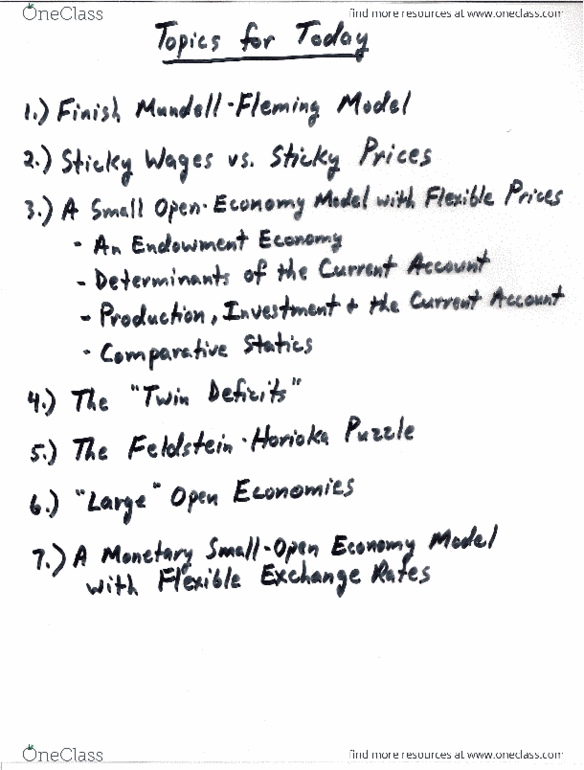 OneClass
find more resources at www.oneclass.com
Topics for Today
1.) Finish Mundell-Fleming Model
2.) Sticky Wages vs. Sticky Prices
3.) A Small Open-Economy Model with Flexible Prices
- An Endowment Economy
- Determinants of the Current Account
- Production, Investment + the Current Account
- Comparative Statics
4.) The "Twin Deficits"
5.) The Feldstein-Horioka Puzzle
6.) "Large" Open Economies
7.) A Monetary Small-Open Economy Model
with Flexible Exchange Rates
OneClass
find more resources at www.oneclass.com